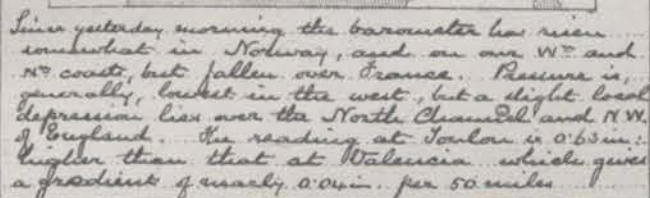 Since yesterday morning the barometer has risen
somewhat in Norway, and on our Wn and
Nn coasts, but fallen over France. Pressure is,
generally, lowest in the west, but a slight local
depression lies over the North Channel and N.W.
of England. The reading at Toulon is 0.63 in:
higher than that at Valencia which gives
a gradient of nearly 0.04 in. per 50 miles